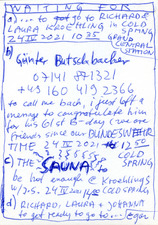 WAITING FOR
a) ... to go to RICHARD &
LAURA KROEHLING IN COLD
SPRING
24 IV 2021 10 25 GRAND
CENTRAL
STATION
b) Günter Butschbacher
07141 871321
+49 160 419 2366
to call me back, i just left a
message to congratulate him
for his 61 B-day (we are
friends since our BUNDESWEHR
TIME 24 IV 2021 12 50
COLD
SPRING
c) The SAUNA to
be hot enough @ Kroehlings
24 IV 2021 COLD SPRING
d) RICHARD, LAURA + JOHANNA
to get ready to go ...